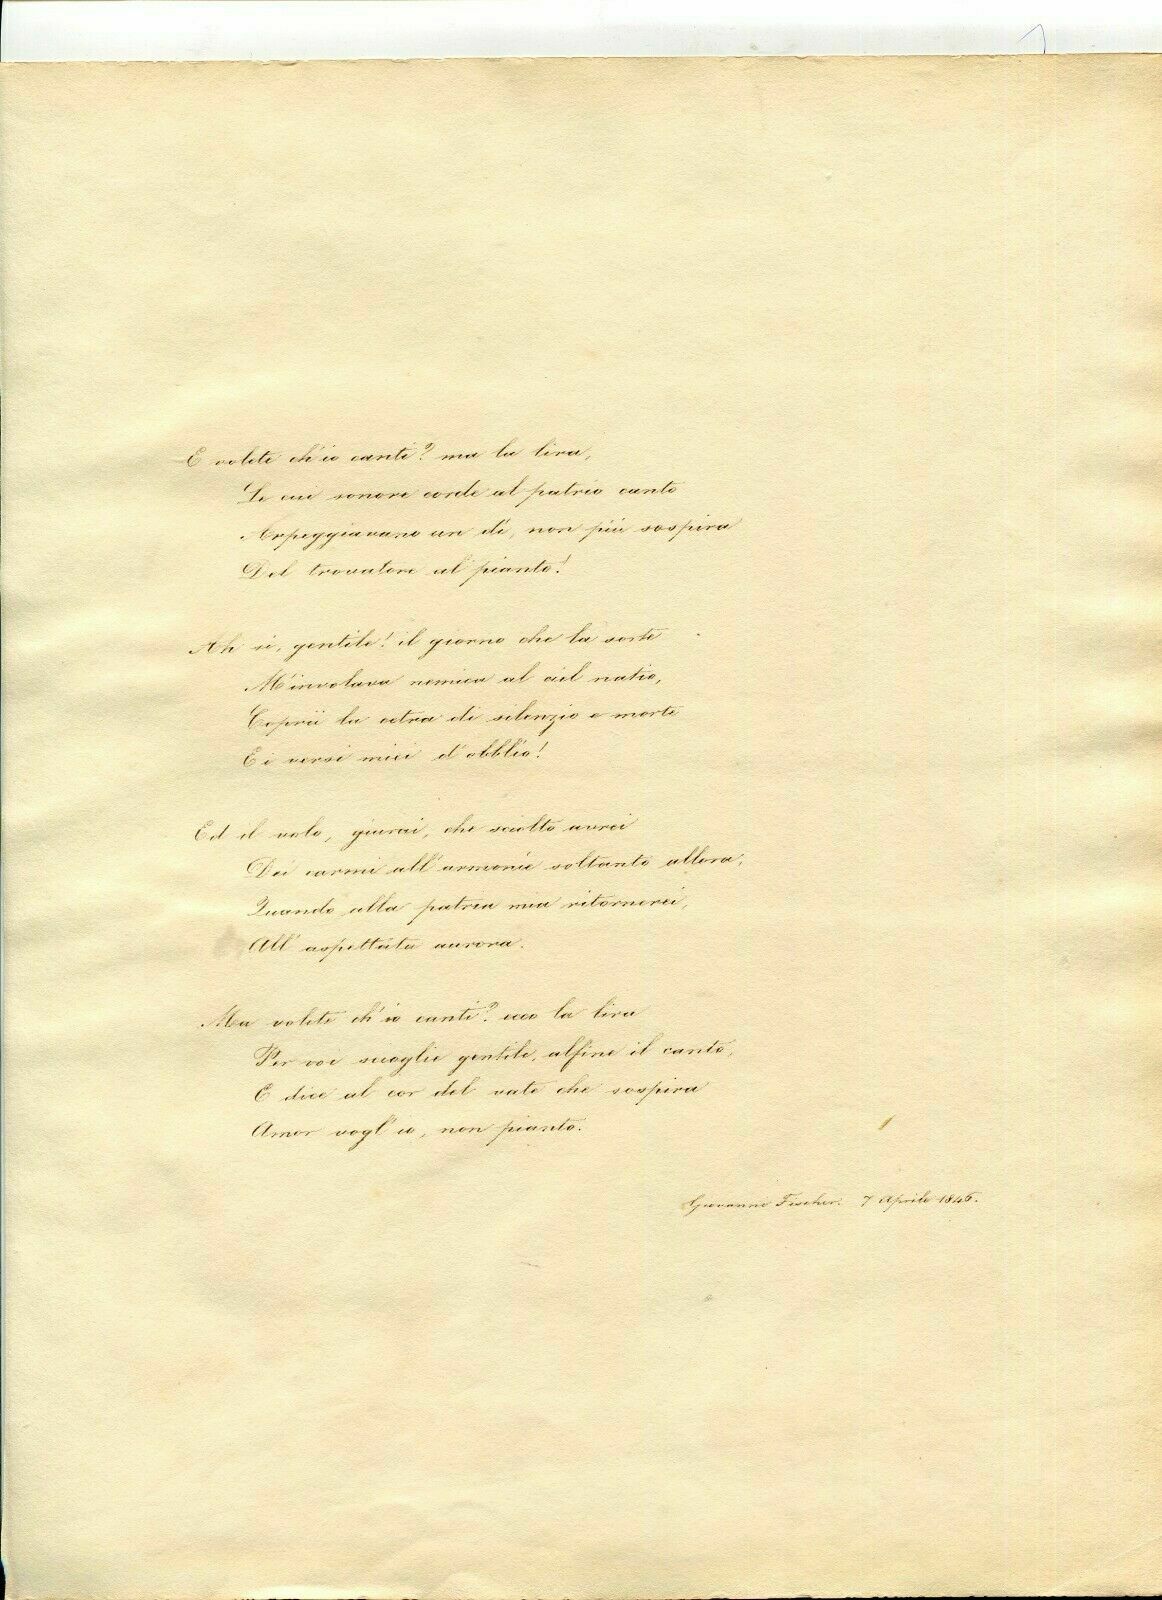 E volete ch'io canti? ma la lira,
Le cui sonore corde al patrio canto
Arpeggiavano un dì, non più sospira
Del trovatore al pianto!
Ah sì, gentile! il giorno che la sorte
M'involava nemica al ciel natio,
Coprii la cetra di silenzio e morte
E i versi miei d'obblio!
Ed il volo, giurai, che sciolto avrei
Dei carmi all'armonie soltanto allora,
Quando alla patria mia ritornerei,
All'aspettata aurora.
Ma volete ch'io canti? ecco la lira
Per voi scioglie gentile, alfine il canto,
E dice al cor del vate che sospira
Amor vogl'io, non pianto.
Giovanni Fischer. 7 Aprile 1846.